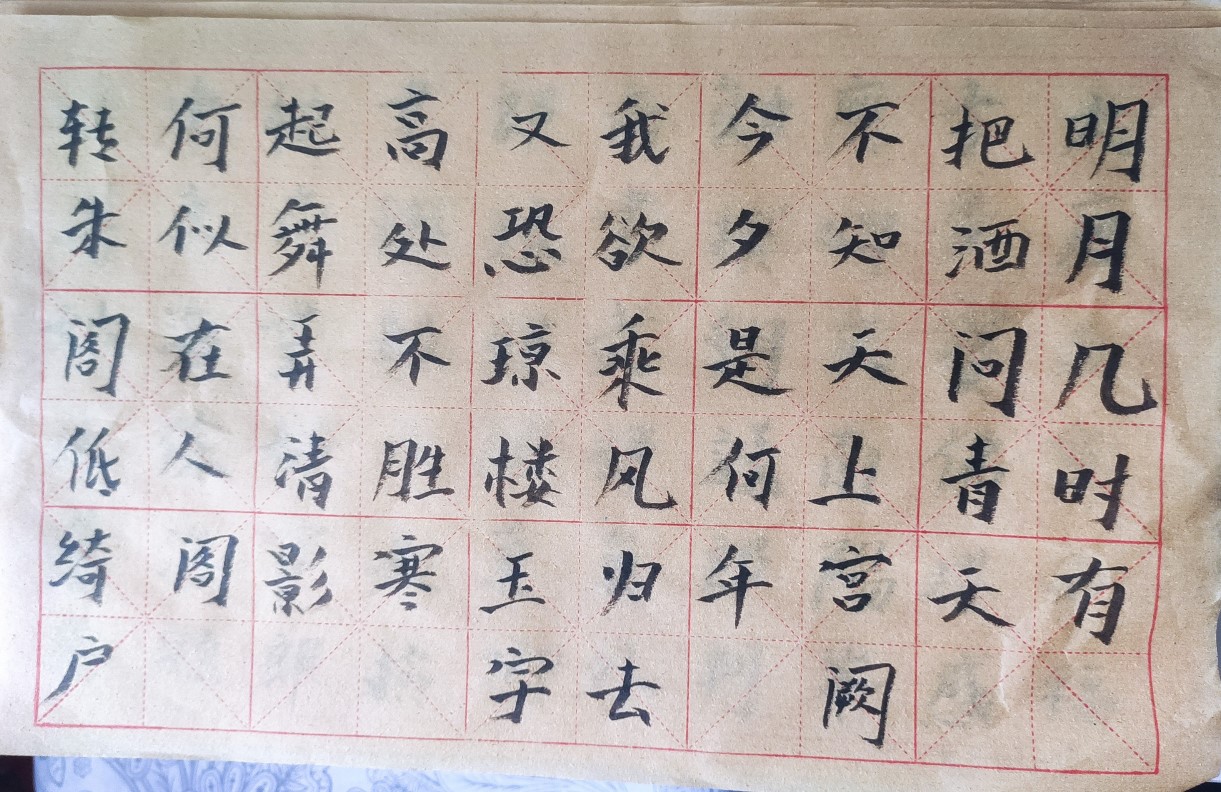 明月几时有
把酒问青天
不知天上宫阙
今夕是何年
我欲乘风归去
又恐琼楼玉宇
高处不胜寒
起舞弄清影
何似在人阁
转朱阁低绮户